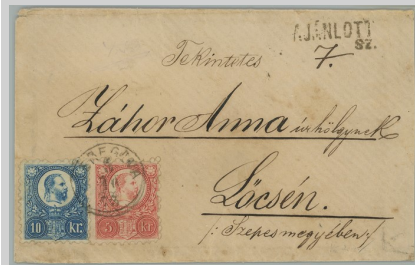 AJÁNLOTT
SZ.
Tekintetes 7.
Záhor Anna úrhölgynek
Lőcsén.
/: Szepesmegyében :/
10 Kr.
5 Kr.